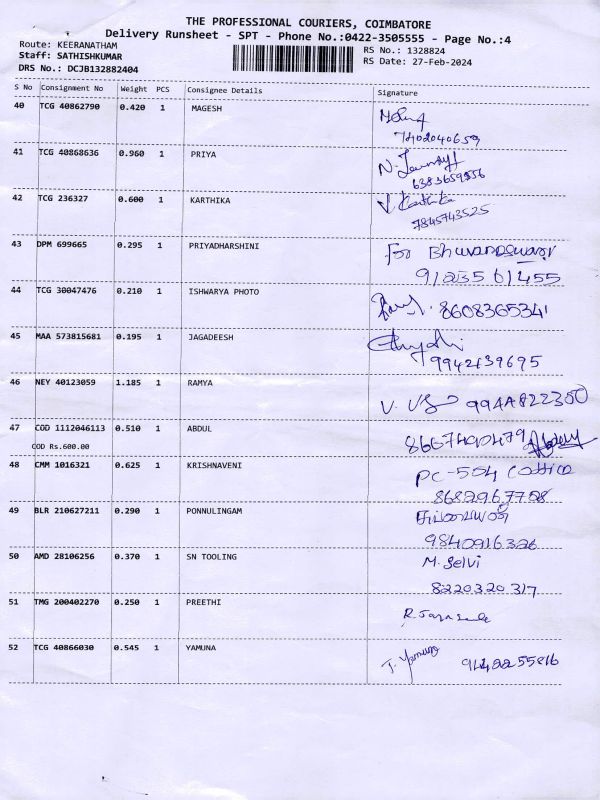 THE PROFESSIONAL COURIERS, COIMBATORE
Delivery Runsheet - SPT - Phone No.:0422-3505555 - Page No.:4
Route: KEERANATHAM
RS No.: 1328824
Staff: SATHISHKUMAR
RS Date: 27-Feb-2024
DRS No.: DCJB132882404
S No Consignment No Weight PCS Consignee Details Signature
40 TCG 40862790 0.420 1 MAGESH
7402040659
41 TCG 40868636 0.960 1 PRIYA
6383659556
42 TCG 236327 0.600 1 KARTHIKA V Karthika
7845743525
43 DPM 699665 0.295 1 PRIYADHARSHINI for Bhuvaneswari
9123561455
44 TCG 30047476 0.210 1 ISHWARYA PHOTO 8608365341
45 MAA 573815681 0.195 1 JAGADEESH
9942139695
46 NEY 40123059 1.185 1 RAMYA
47 COD 1112046113 0.510 1 ABDUL
COD Rs.600.00
48 CMM 1016321 0.625 1 KRISHNAVENI PC-504
8682967708
49 BLR 210627211 0.290 1 PONNULINGAM
9840916326
50 AMD 28106256 0.370 1 SN TOOLING M. Selvi
8220320317
51 TMG 200402270 0.250 1 PREETHI
52 TCG 40866030 0.545 1 YAMUNA J. Yamuna